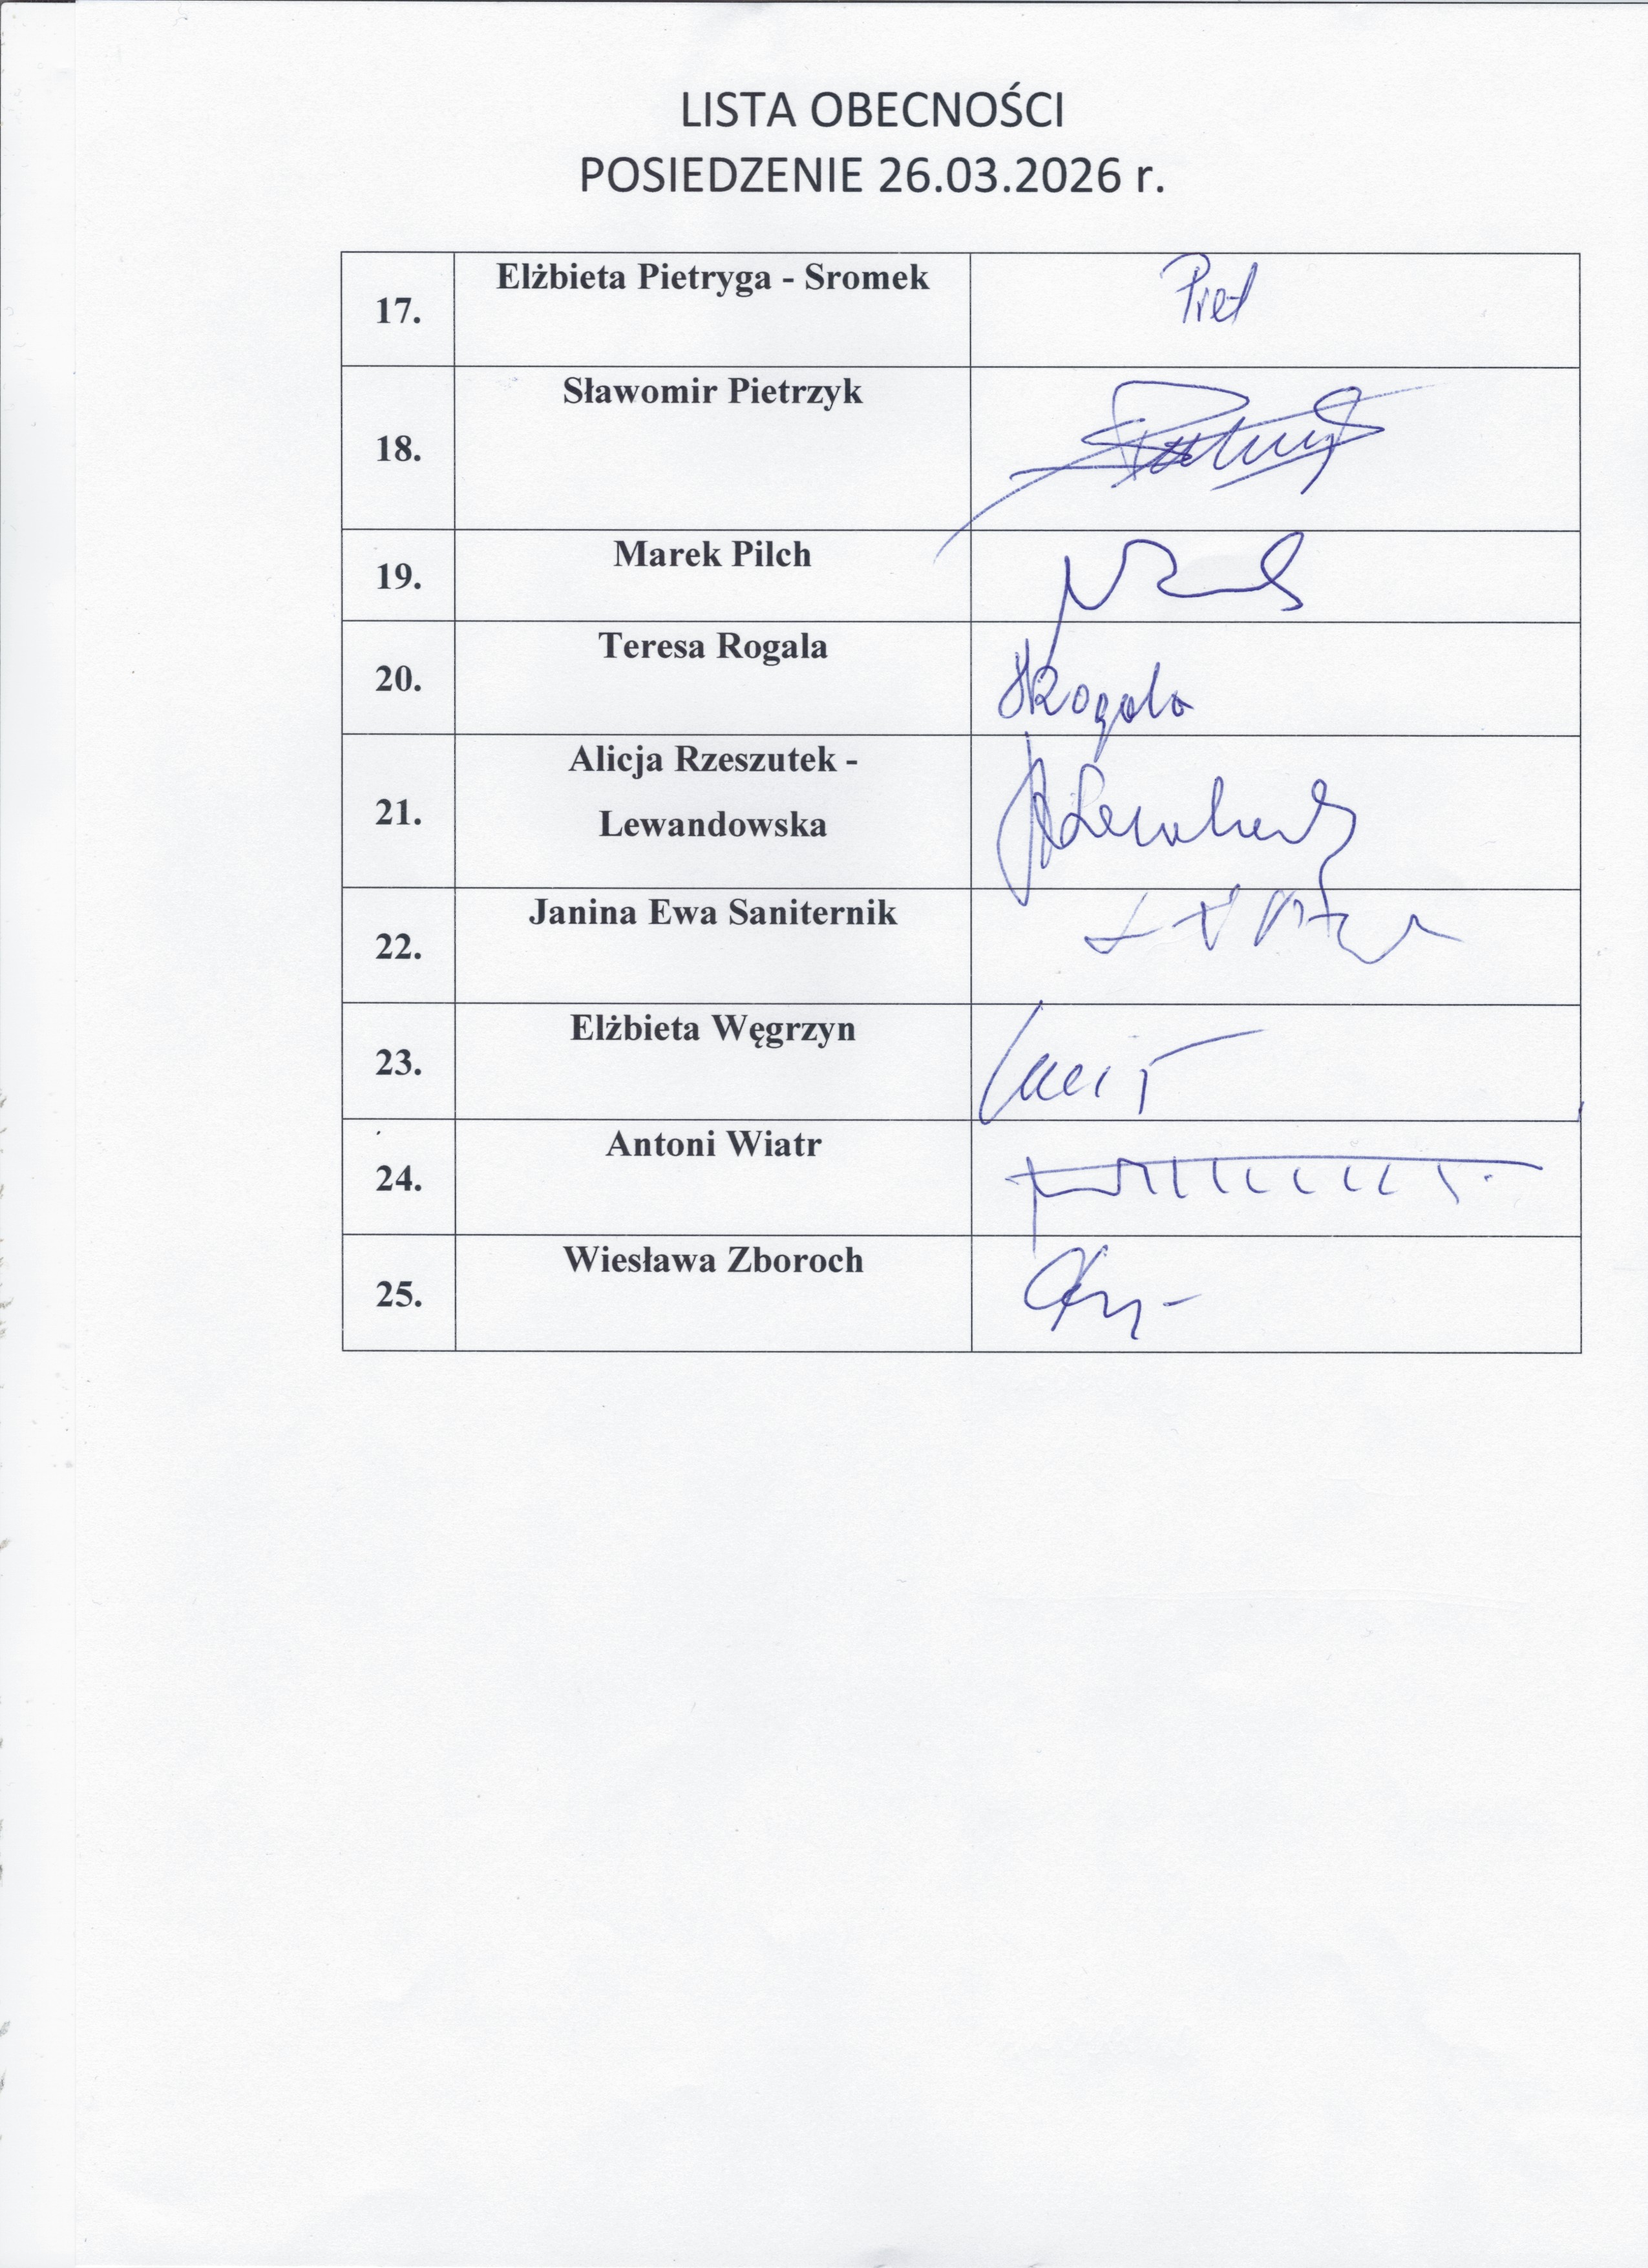 LISTA OBECNOŚCI
POSIEDZENIE 26.03.2026 r.
17. Elżbieta Pietryga - Sromek
18. Sławomir Pietrzyk
19. Marek Pilch
20. Teresa Rogala
21. Alicja Rzeszutek -
Lewandowska
22. Janina Ewa Saniternik
23. Elżbieta Węgrzyn
24. Antoni Wiatr
25. Wiesława Zboroch